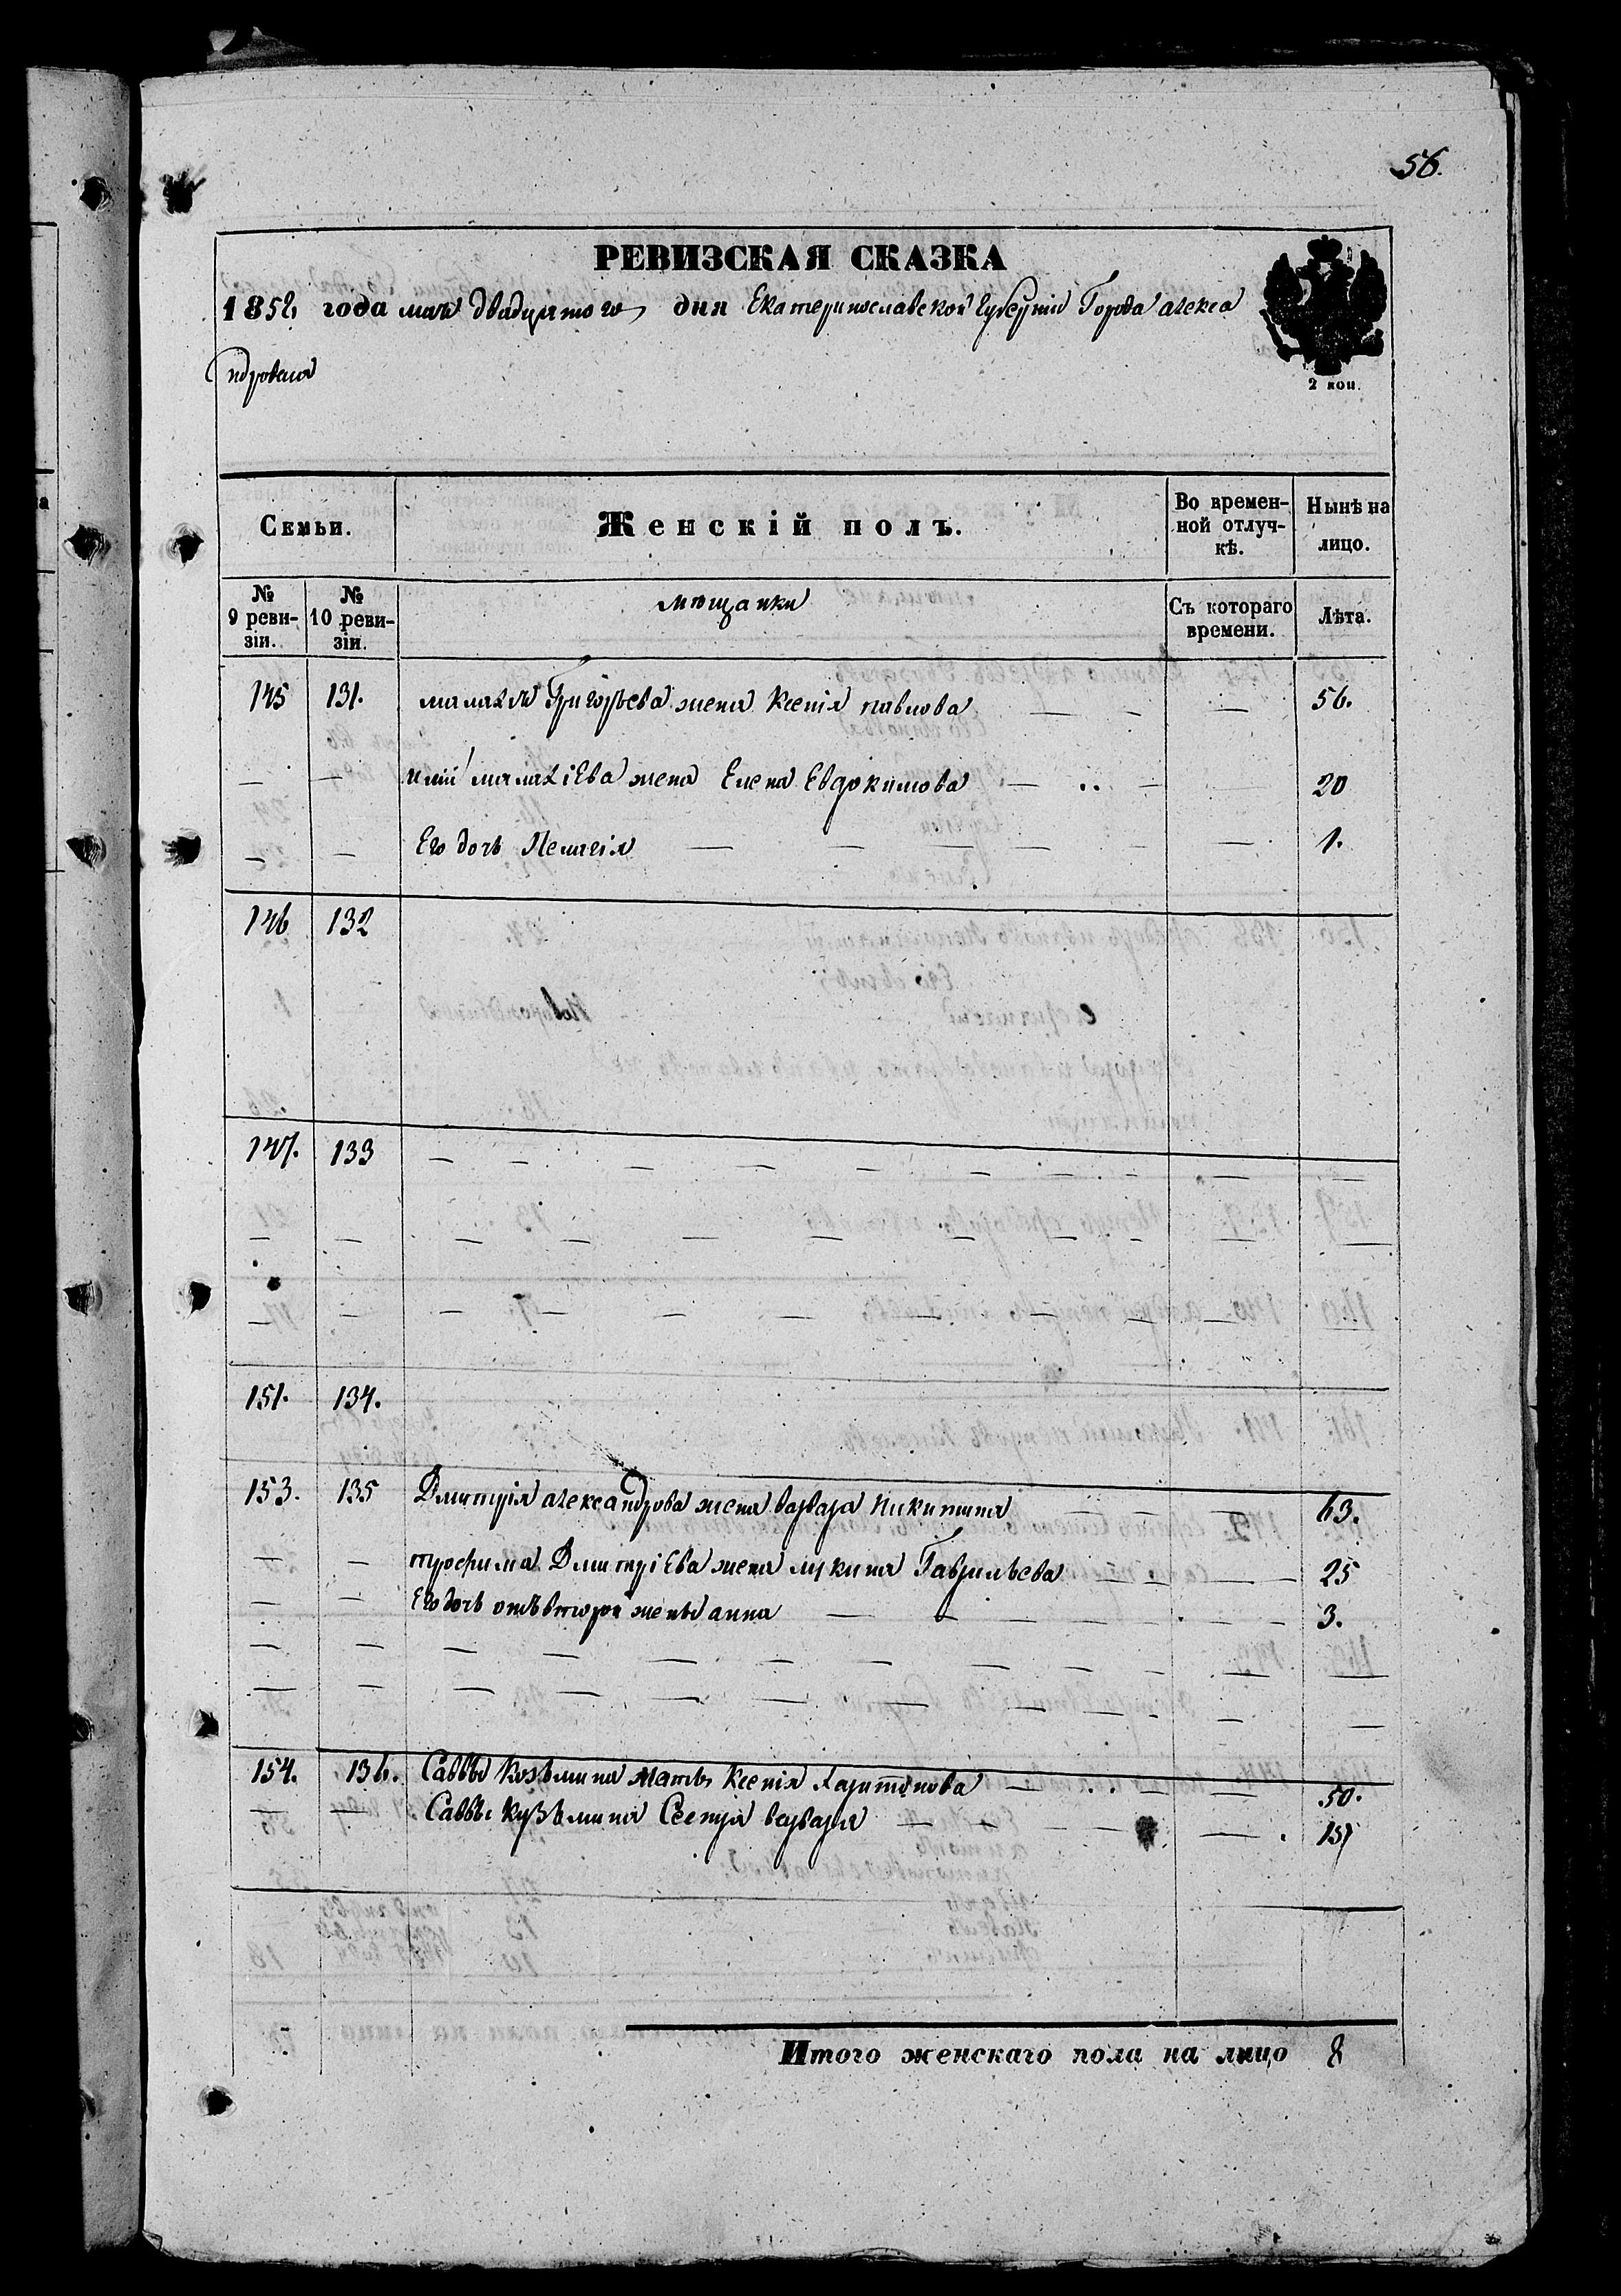 56.
РЕВИЗСКАЯ СКАЗКА
1858 года мая двадцятого дня Екатеринославской Губерніи Города алекса
ндровска
2 коп.
Семьи.
Женскій полъ.
Во времен-
ной отлуч-
кѣ.
Нынѣ на
лицо.
№
9 реви-
зіи.
№
10 реви-
зіи.
мѣщанки
Съ котораго
времени.
Лѣта.
145 131. малахія Григорьева жена Ксенія павлова — — — 56.
— — малахіева жена Елена Евдокимова — — — 20
— — Его дочь Пелагія — — — — — — 1.
146 132
147. 133 — — — — — — — — — —
— — — — — — — — — — —
— — — — — — — — —
151. 134.
153. 135 Дмитрія александрова жена варвара Никитина — — — — 63.
— — трофима Дмитріева жена Гаврильева — — — 25
— — Его дочь отъ второй жены анна — — — — — — 3.
— — — — — — — — — — — —
— — — — — — — — — — — —
154. 136. Саввы Козьмина мать Ксенія Харитонова — — — 50.
— — Саввы Кузьмина Сестра варвара — — — — — 15
Итого женскаго пола на лицо 8